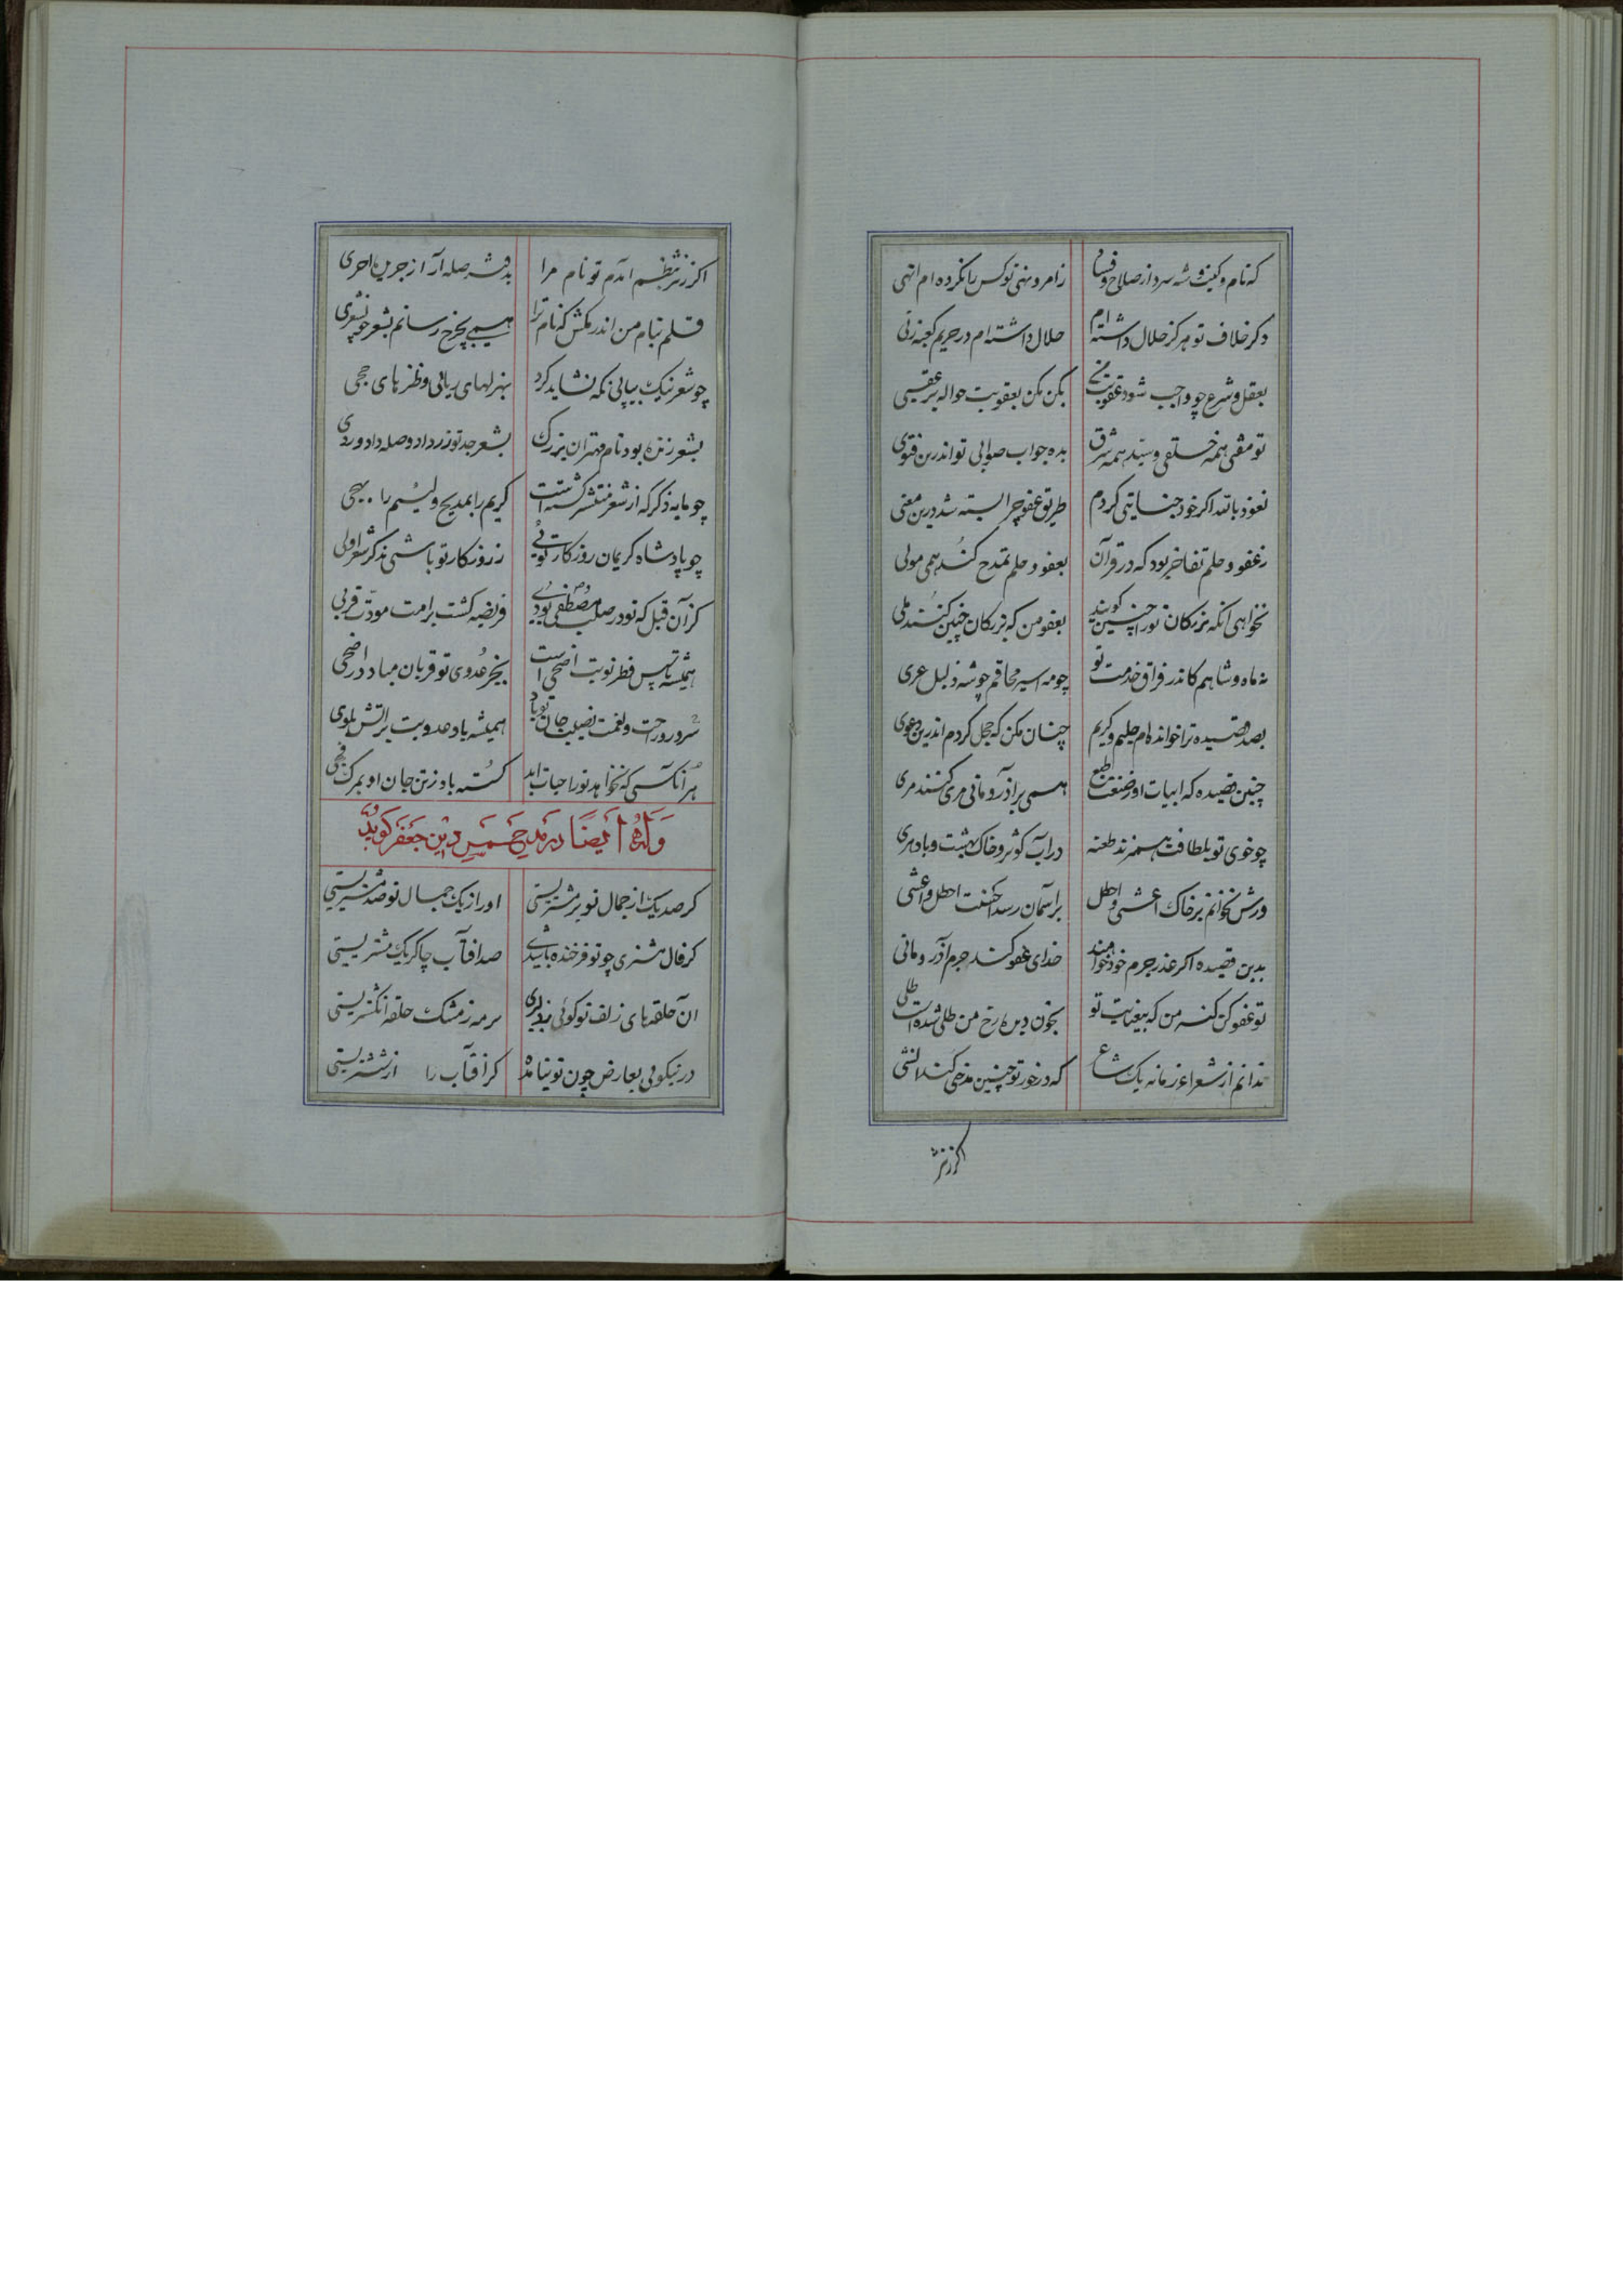 که نام و کنیت و شه سرد از صلاح و فساد زامر و نهی تو کس را نکرده ام انهی
دکر خلاف تو هرکز حلال داشته ام حلال داشته ام در حریم کعبه زنی
بعقل و شرع چو واجب شود عقوبت من بکن مکن بعقوبت حواله بر عقبی
تو مفتی همه خلقی و سید همه شرق بده جواب صوابی تو اندرین فتوی
نعوذ بالله اکر خود جنایتی کردم طریق عفو چرا بسته شد درین معنی
زعفو و حلم تفاخر بود که در قرآن بعفو و حلم تمدح کند همی مولی
نخواهی آنکه بزرکان تورا چنین کویند بعفو من که بزرکان چنین کنند بلی
نه ماه و شاهم کاندر فراق خدمت تو چو مه اسیر محاقم چو شه ذلیل عری
بصد قصیده ترا خوانده ام حلیم و کریم چنان مکن که خجل کردم اندرین دعوی
چنین قصیده که ابیات او ز صنعت طبع همی بر آذر و مانی مری کنند مری
چو خوی تو بلطافت همی زند طعنه در آب کوثر و خاک بهشت و باد مری
ورش بخوانم بر خاک اعشی و اخطل بر آسمان رسد احسنت اخطل و اعشی
بدین قصیده اکر عذر جرم خود خواهند خدای عفو کند جرم آذر و مانی
تو عفو کن کنه من که بیعنایت تو بخون دیده رخ من طلی شده است طلی
ندانم از شعراء زمانه یک شاعر که در خور تو چنین مدحی کند انشی
کر زنثر
اکر ز نثر بنظم آمدم تو نام مرا بدفتر صله آر از جریده اجری
قلم بنام من اندر مکش که نام ترا همی بچرخ رسانم بشعر چو شعری
چو شعر نیک بیابی نکه نشاید کرد بهزلهای ربابی و طنزهای حجی
بشعر زنده بود نام مهتران بزرک بشعر جد تو زر داد و صله داد وردی
چو مایه ذکر که از شعر منتشر کشتست کریم را بمدیح و لئیم را بهجی
چو پادشاه کریمان روزکار توئی ز روزکار تو باشی بذکر شعر اولی
کز آن قبل که تو در صلب مصطفی بودی فریضه کشت بر امت مودت قربی
همیشه تا پس فطر نوبت اضحی است بجز عدوی تو قربان مباد در اضحی
سرور و راحت و نعمت نصیب جان تو باد همیشه باد عدویت بر آتش بلوی
هر آنکسی که نخواهد تورا حیات ابد کسسته باد ز تن جان او بمرک فجی
وله ایضا در مدیح خمس دین جعفر کوید
کر صد یک از جمال تو بر مشتریستی اورا ز یک جمال تو صد مشتریستی
کر فال مشتری چو تو فرخنده باشدی صد آفتاب چاکر یک مشتریستی
آن حلقهای زلف تو کوئی بدلبری بر مه ز مشک حلقه انکشتریستی
در نیکوئی بعارض چون تو نیامده کر آفتاب را از ششتریستی